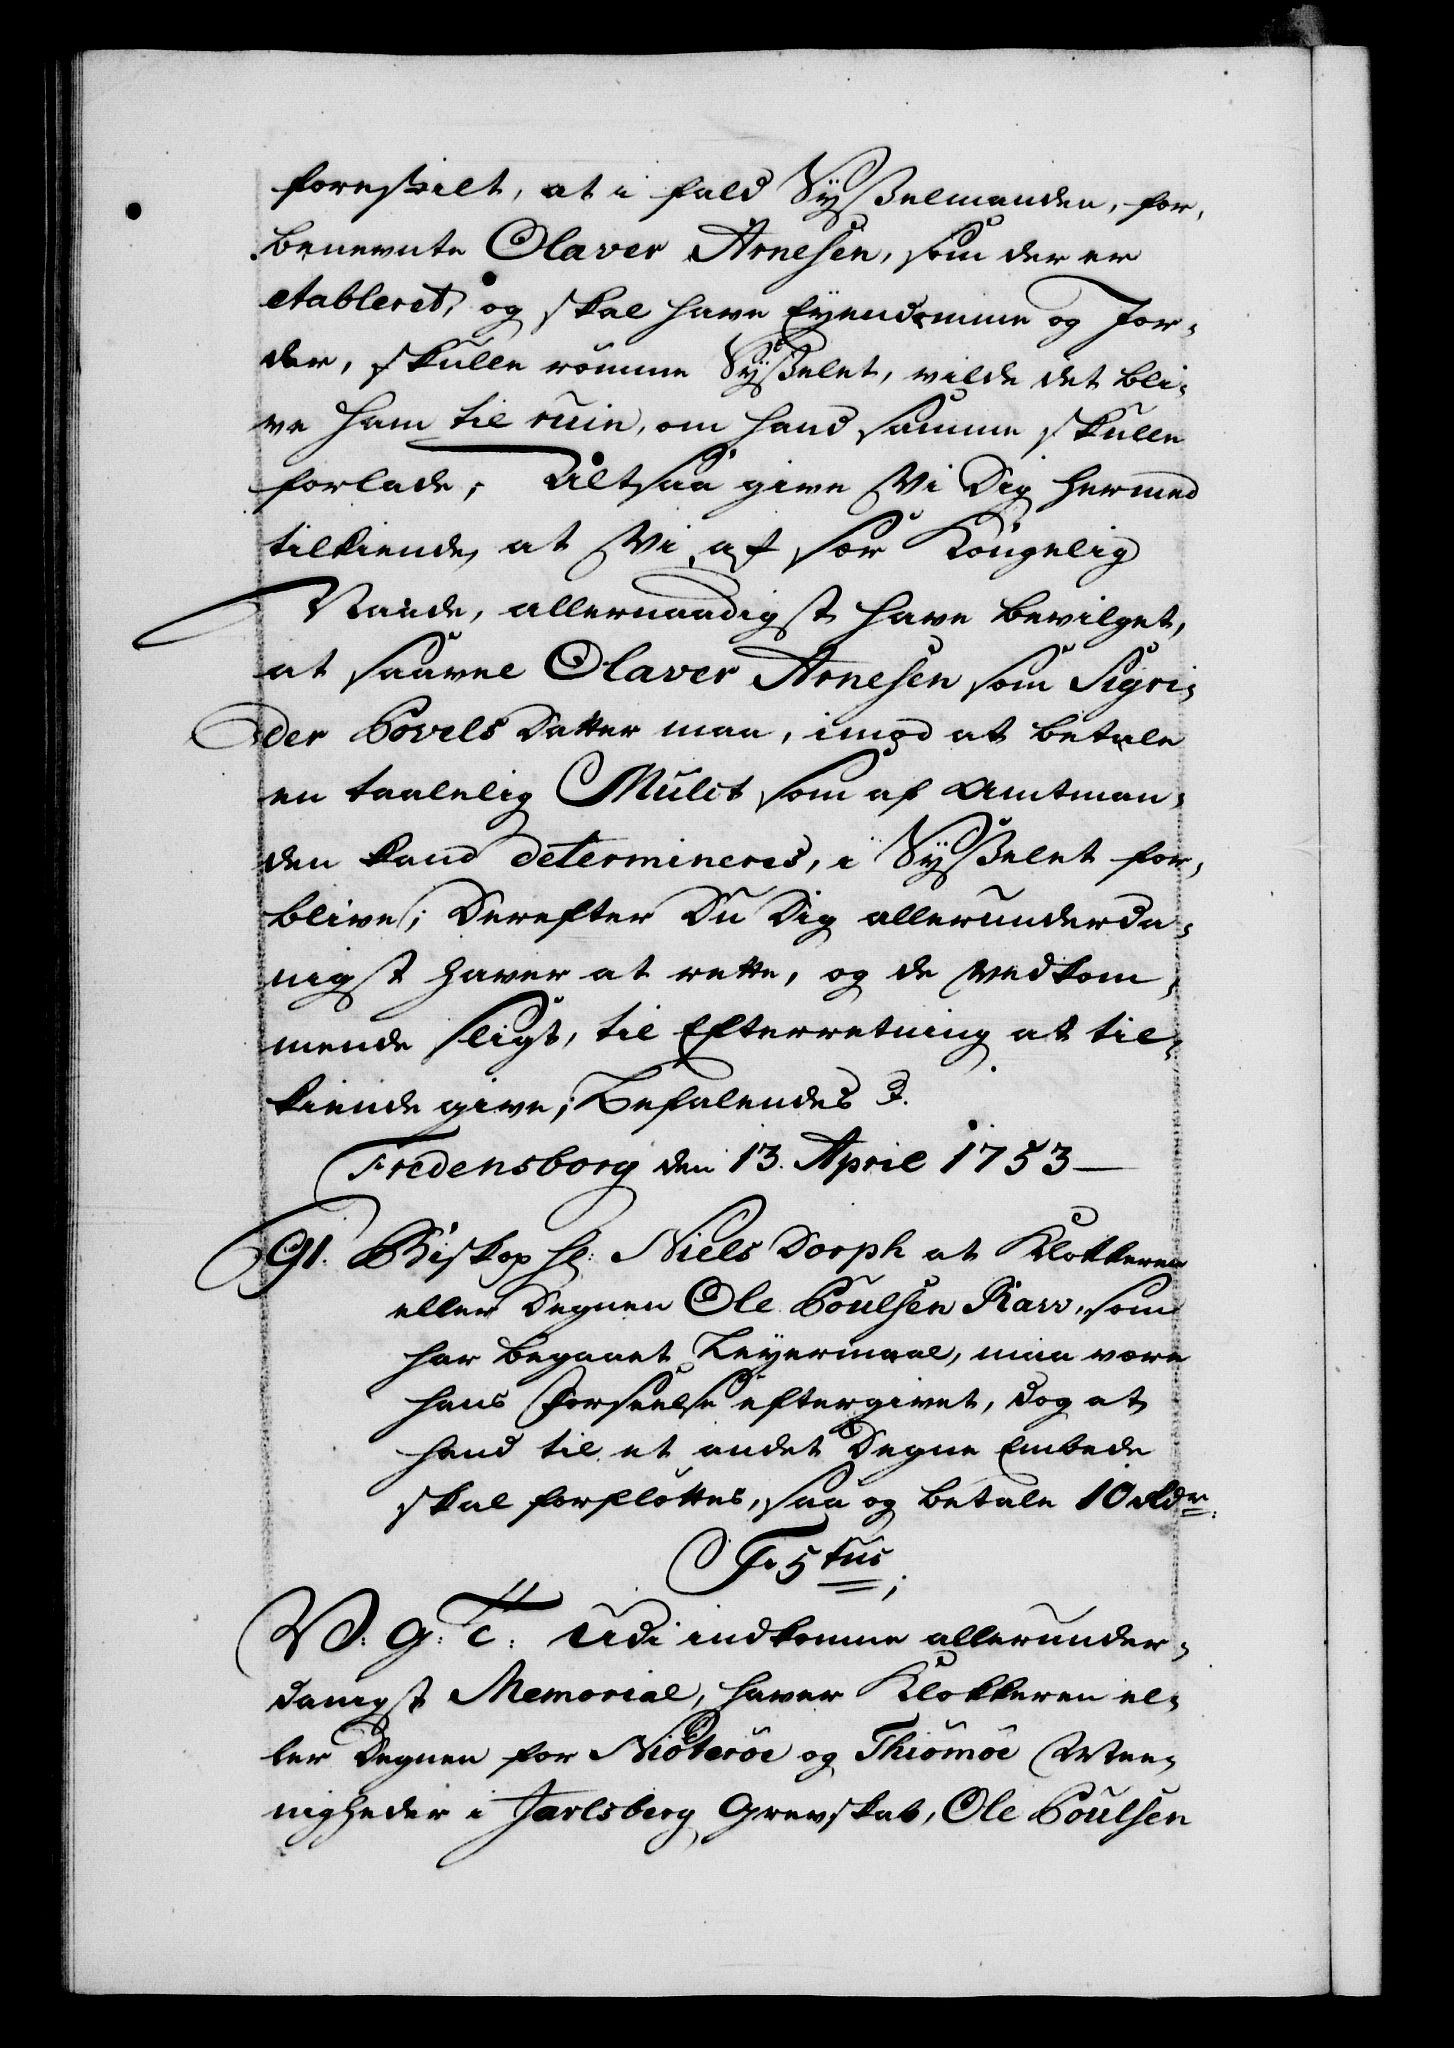 forestilt, at i fald Sysselmanden, for,
benævnte Olaver Arnesen, som der er
etableret, og skal have Eyendomme og Jor,
der, skulle römme Sysselet, vilde det bli,
ve ham til ruin, om hand samme skulle
forlade; Altsaa give Vi Dig hermed
tilkiende, at Vi af sær Kongelig
Naade, allernaadigst have bevilget,
at saavel Olaver Arnesen som Sigri,
der Povels Datter maa, imod at betale
en taalelig Mulct som af Amtman,
den kand determineres, i Sysselet for,
blive; Derefter Du Dig allerunderda,
nigst haver at rette, og de Vedkom,
mende sligt, til Efterretning at til,
kiende give; Befalendes &.
Fredensborg den 13. April 1753
91. Biskop Hr: Niels Dorph at Klokkeren
eller Degnen Ole Poulsen Ravv, som
har begaaet Leyermaal, maa være
hans Forseelse eftergivet, dog at
hand til et andet Degne Embede
skal forflöttes, saa og betale 10 Rdr.
F. 5tus;
V: G: T: Udi indkomne allerunder,
danigst Memorial, haver Klokkeren el,
ler Degnen for Niöteröe og Thiömöe Mee,
nigheder i Jarlsberg Grevskab, Ole Poulsen